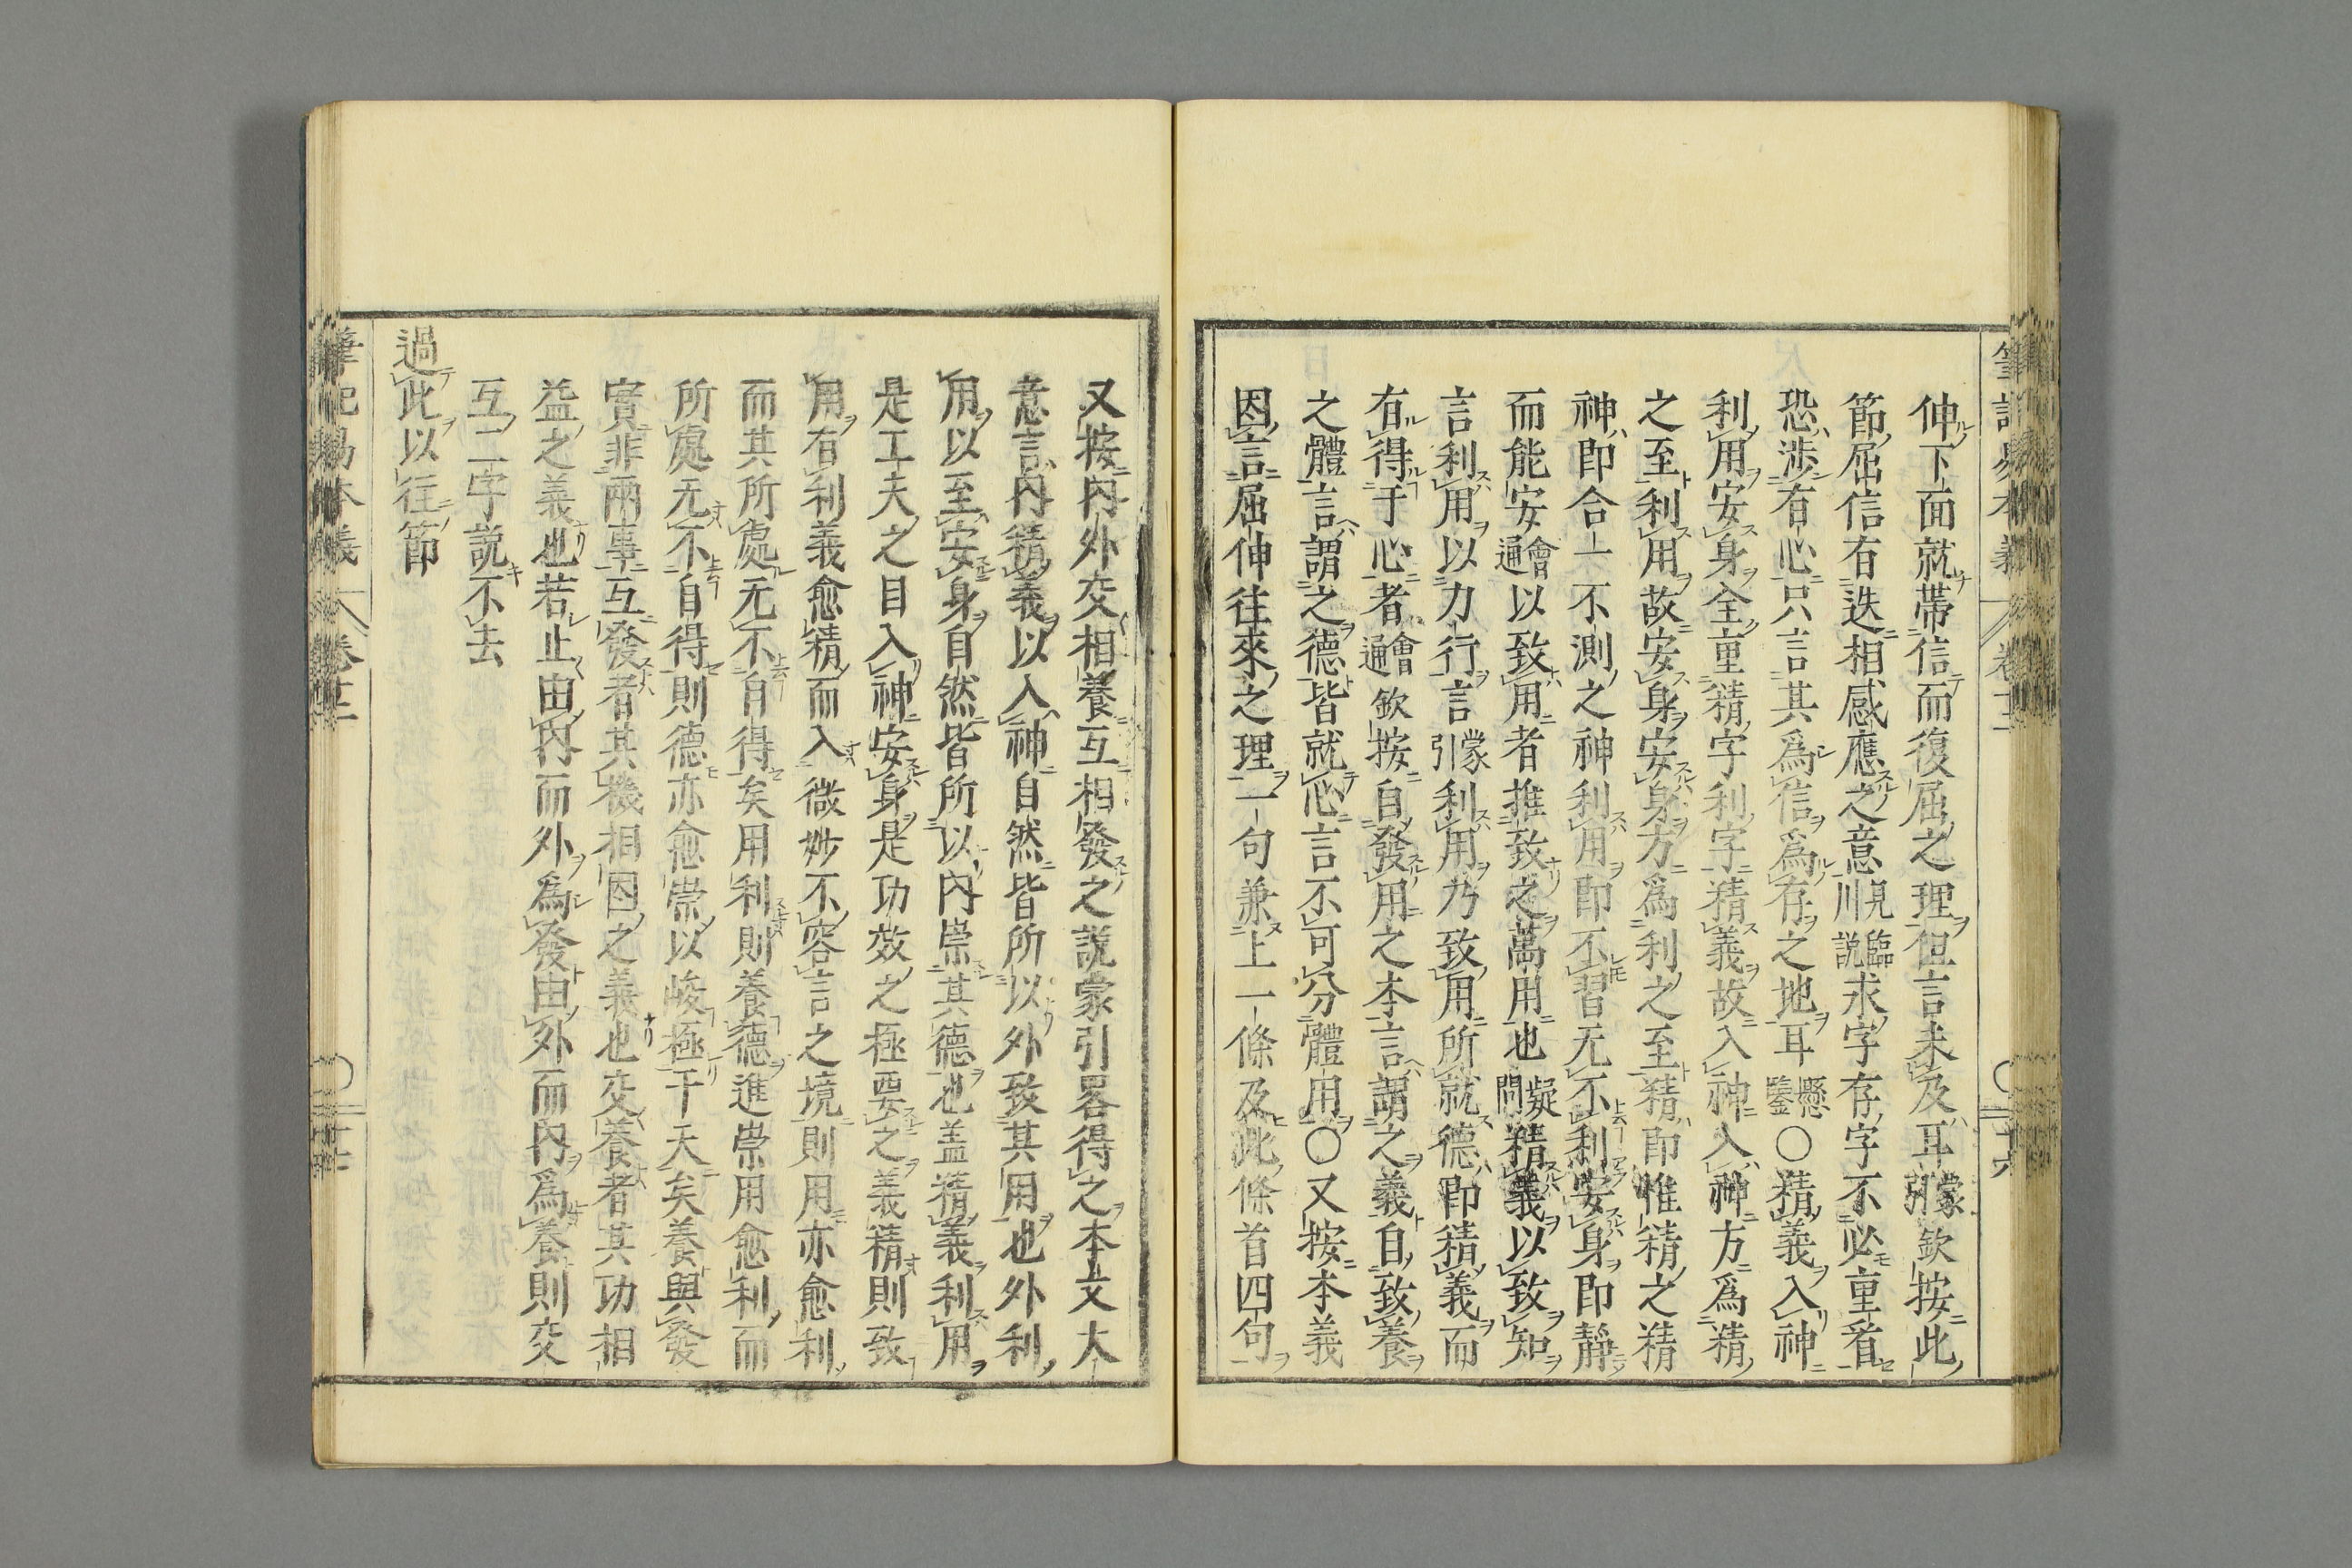 伸下面就帶信而復屈之理但言未及耳蒙引欽按此
節屈信有迭相感應之意見臨川説求字存字不必重看
恐渉有心只言其爲信爲存之地耳懸鑒〇精義入神
利用安身全重精字利字精義故入神入神方爲精
之至利用故安身安身方爲利之至精即惟精之精
神即合一不測之神利用即不習无不利安身即靜
而能安會通以致用者推致之萬用也疑問精義以致知
言利用以力行言蒙引利用乃致用所就德即精義而
有得于心者會通欽按自發用之本言謂之義自致養
之體言謂之德皆就心言不可分體用〇又按本義
因言屈伸往來之理一句兼上一條及此條首四句
又按内外交相養互相發之説蒙引畧得之本文大
意言内精義以入神自然皆所以外致其用也外利
用以至安身自然皆所以内崇其德也盖精義利用
是工夫之目入神安身是功效之極要之義精則致
用有利義愈精而入微妙不容言之境則用亦愈利
而其所處无不自得矣用利則養德進崇用愈利而
所處无不自得則德亦愈崇以峻極于天矣養與發
實非兩事互發者其機相因之義也交養者其功相
益之義也若止由内而外爲發由外而内爲養則交
互二字説不去
過此以往節
筆記易本義 卷十二